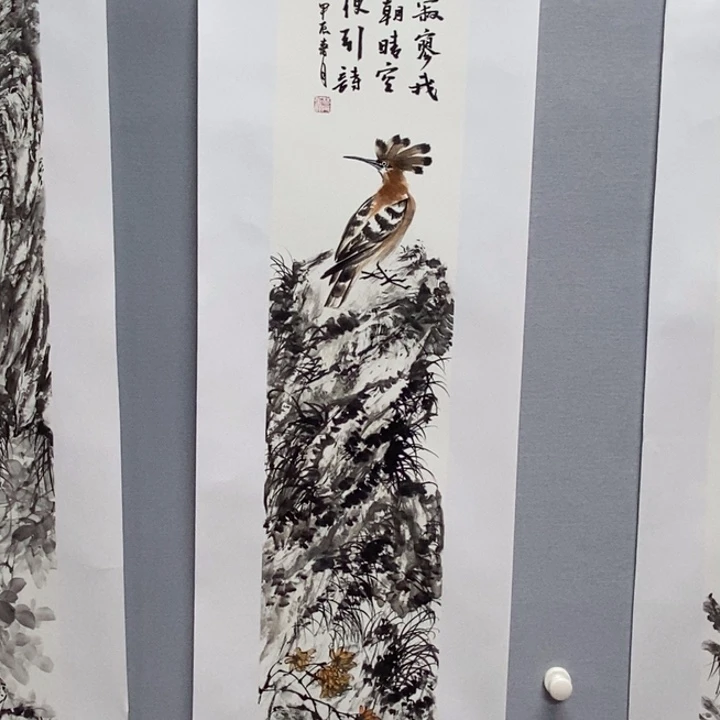 寂寥我
朝晴空
便引詩
甲辰春月